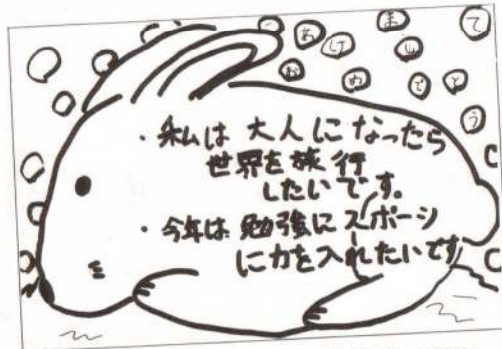 あけまして
おめでとう
・私は 大人に なったら
世界を 旅行
したいです。
・今年は 勉強に スポーツ
に力を入れたいです